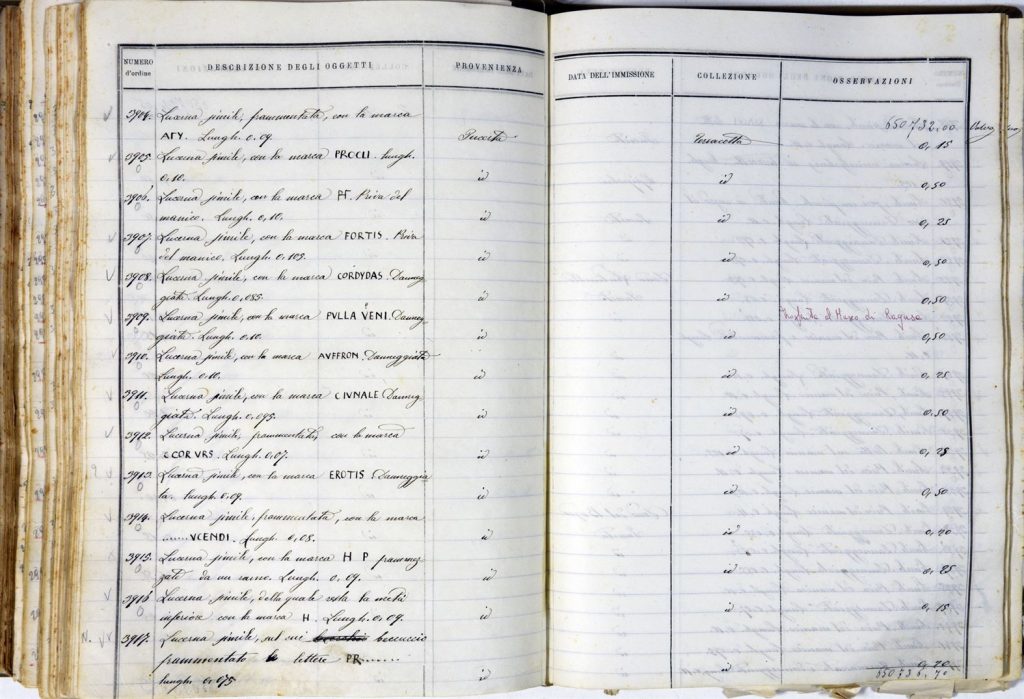 NUMERO d'ordine DESCRIZIONE DEGLI OGGETTI PROVENIENZA DATA DELL'IMMISSIONE COLLEZIONE OSSERVAZIONI
650732.00
3904. Lucerna simile, frammentata, con la marca
AFY. Lungh. 0.09. Incerta Terracotta 0,15
3905. Lucerna simile, con la marca PROCLI. Lungh.
0.10. id id 0,50
3906. Lucerna simile, con la marca PF. Priva del
manico. Lungh. 0,10. id id 0,25
3907. Lucerna simile, con la marca FORTIS. Priva
del manico. Lungh. 0,105. id id 0,50
3908. Lucerna simile, con la marca CORDYDAS. Danneg-
giata. Lungh. 0,085. id id 0,50
3909. Lucerna simile, con la marca PVLLAVENI. Danneg- Trasferita al Museo di Ragusa
giata. Lungh. 0,10. id id 0,50
3910. Lucerna simile, con la marca AVFFRON. Danneggiata
Lungh. 0,10. id id 0,25
3911. Lucerna simile, con la marca CIVNALE. Danneg-
giata. Lungh. 0,095. id id 0,50
3912. Lucerna simile, frammentata, con la marca
CCORVRS. Lungh. 0,07. id id 0,25
3913. Lucerna simile, con la marca EROTIS. Danneggia-
ta. Lungh. 0,09. id id 0,50
3914. Lucerna simile, frammentata, con la marca
.......VCENDI. Lungh. 0,08. id id 0,20
3915. Lucerna simile, con la marca H P frammez-
zate da un ramo. Lungh. 0,09. id id 0,25
3916 Lucerna simile, della quale resta la metà
inferiore con la marca H. Lungh. 0,09. id id 0,15
3917. Lucerna simile, sul cui beccuccio
frammentato le lettere PR........
Lungh. 0,075 id id 0,20
650736,70